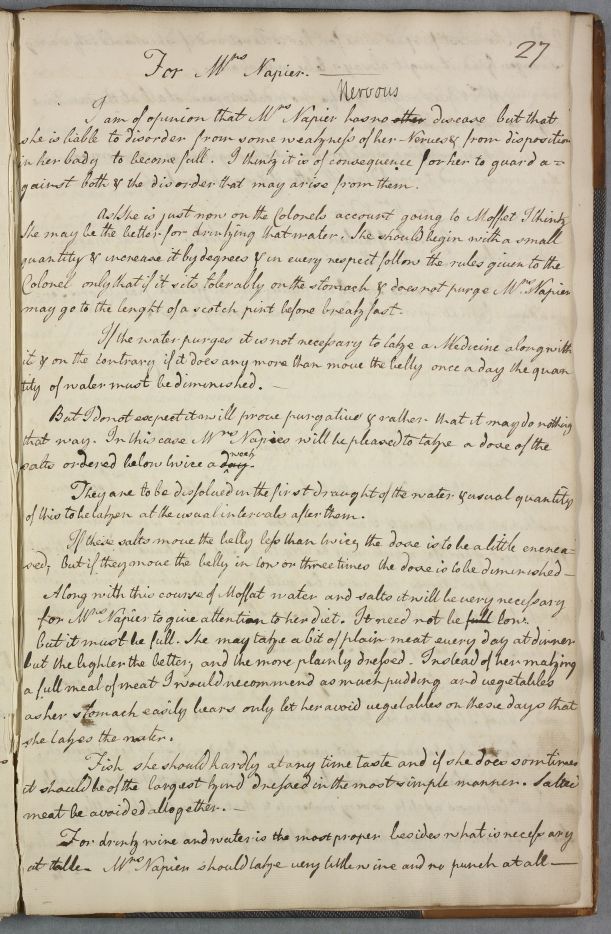 27
For Mrs Napier. —
Nervous
I am of opinion that Mrs Napier has no other disease but that
she is liable to disorder from some weakness of her Nerves & from disposition
in her body to become full. I think it is of consequence for her to guard a=
gainst both & the disorder that may arise from them.
As She is just now on the Colonels account going to Moffet I think
She may be the better for drinking that water. She should begin with a small
quantity & increase it by degrees & in every respect follow the rules given to the
Colonel only that if it sits tolerably on the stomach & does not purge Mrs Napier
may go to the lenght of a scotch pint before breakfast.
If the water purges it is not necessary to take a Medicine along with
it & on the contrary if it does any more than move the belly once a day the quan
tity of water must be diminished. —
But I do not expect it will prove purgative & rather that it may do nothing
that way. In this case Mrs Napier will be pleased to take a dose of the
week
salts ordered below twice a day.
They are to be dissolved in the first draught of the water & usual quantity
of this to be taken at the usual intervals after them.
If these salts move the belly less than twice, the dose is to be a little encrea-
sed, but if they move the belly in tow or three times the dose is to be diminished —
Along with this course of Moffat water and salts it will be very necessary
for Mrs Napier to give attention to her diet. It need not be full low.
but it must be full. She may take a bit of plain meat every day at dinner
but the lighter the better, and the more plainly dressed. Instead of her making
a full meal of meat I would recommend as much pudding and vegetables
as her stomach easily bears only let her avoid vegetables on these days that
she takes the water.
Fish she should hardly at any time taste and if she does somtimes
it should be of the largest kind dressed in the most simple manner. Salted
meat be avoided altogether. —
For drink wine and water is the most proper besides what is necessary
at table. Mrs Napier should take very little wine and no punch at all —